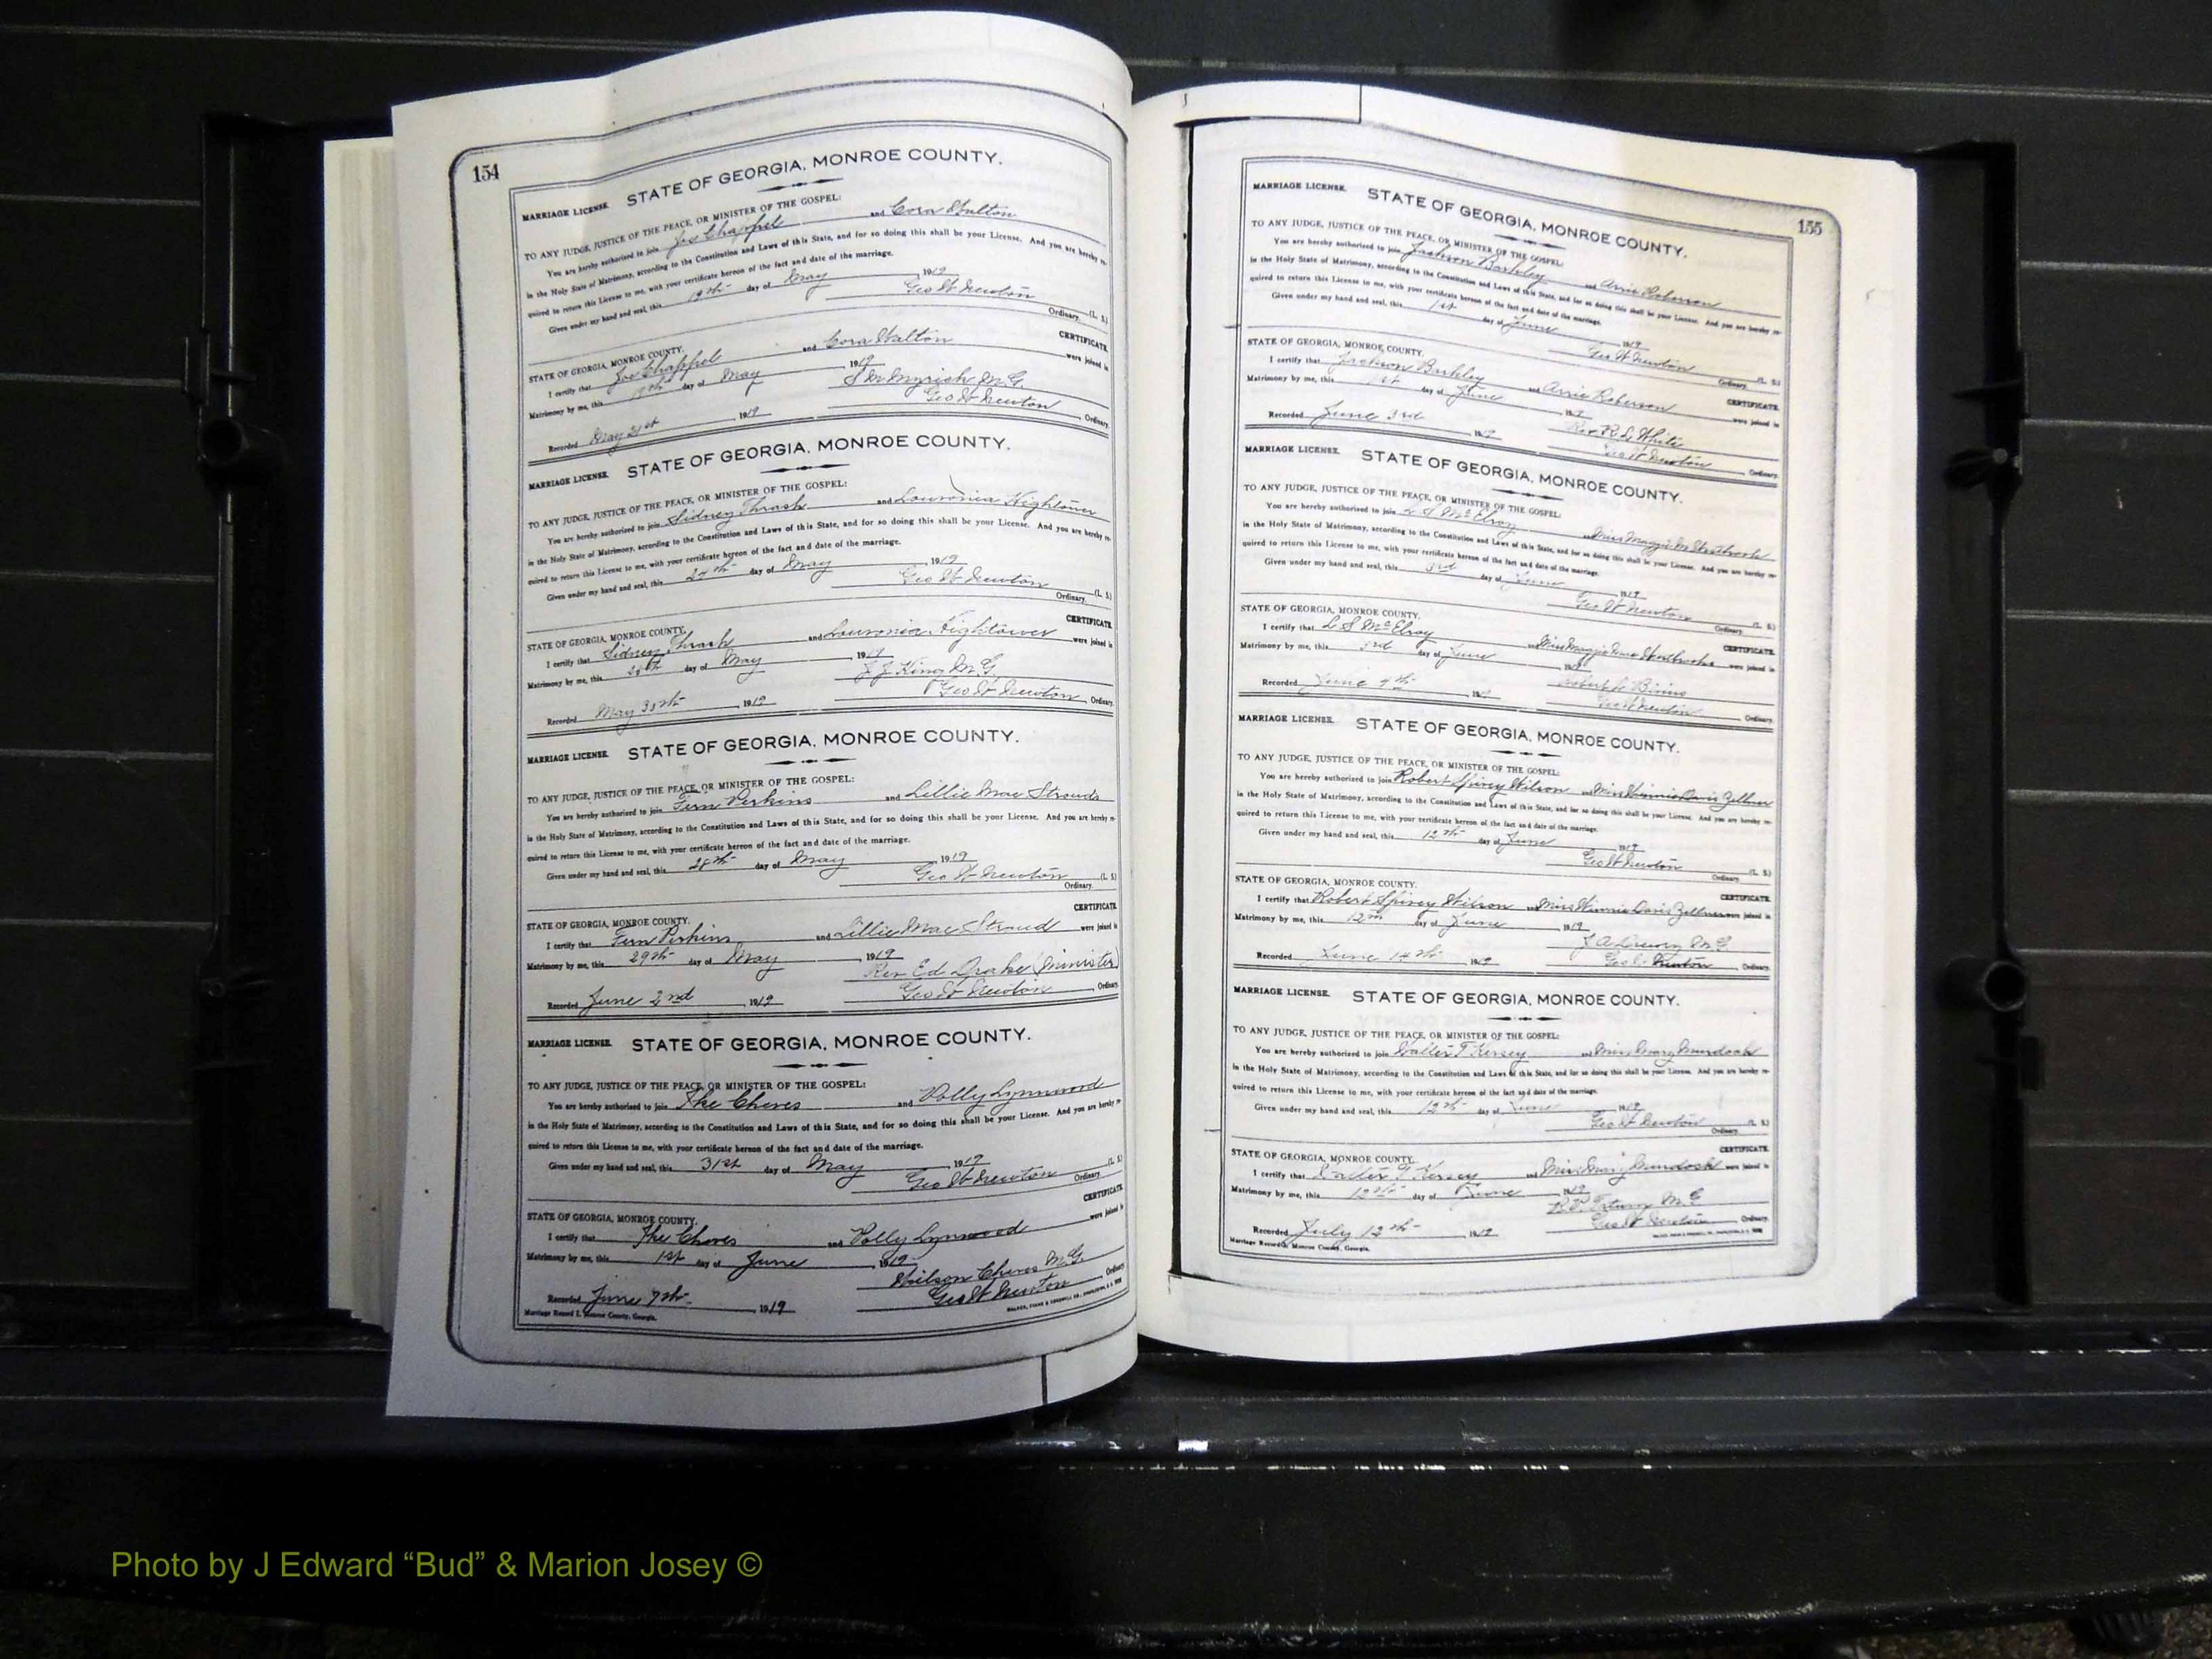 154
MARRIAGE LICENSE. STATE OF GEORGIA, MONROE COUNTY.
TO ANY JUDGE, JUSTICE OF THE PEACE, OR MINISTER OF THE GOSPEL:
You are hereby authorized to join Joe Chappel and Cora Walton
in the Holy State of Matrimony, according to the Constitution and Laws of this State, and for so doing this shall be your License. And you are hereby re-
quired to return this License to me, with your certificate hereon of the fact and date of the marriage.
Given under my hand and seal, this day of May, 1919
Geo W Newton (L. S.)
Ordinary.
STATE OF GEORGIA, MONROE COUNTY. CERTIFICATE.
I certify that Joe Chappel and Cora Walton were joined in
Matrimony by me, this day of May, 1919
M.G.
Recorded May 21st 1919 Geo W Newton, Ordinary.
MARRIAGE LICENSE. STATE OF GEORGIA, MONROE COUNTY.
TO ANY JUDGE, JUSTICE OF THE PEACE, OR MINISTER OF THE GOSPEL:
You are hereby authorized to join Sidney Thrash and Louronia Hightower
in the Holy State of Matrimony, according to the Constitution and Laws of this State, and for so doing this shall be your License. And you are hereby re-
quired to return this License to me, with your certificate hereon of the fact and date of the marriage.
Given under my hand and seal, this day of May, 1919
Geo W Newton (L. S.)
Ordinary.
STATE OF GEORGIA, MONROE COUNTY. CERTIFICATE.
I certify that Sidney Thrash and Louronia Hightower were joined in
Matrimony by me, this day of May, 1919
J J King M.G.
Recorded May 30th, 1919 Geo W Newton, Ordinary.
MARRIAGE LICENSE. STATE OF GEORGIA, MONROE COUNTY.
TO ANY JUDGE, JUSTICE OF THE PEACE, OR MINISTER OF THE GOSPEL:
You are hereby authorized to join Fern Perkins and Lillie Mae Strouds
in the Holy State of Matrimony, according to the Constitution and Laws of this State, and for so doing this shall be your License. And you are hereby re-
quired to return this License to me, with your certificate hereon of the fact and date of the marriage.
Given under my hand and seal, this 28th day of May, 1919
Geo W Newton (L. S.)
Ordinary.
STATE OF GEORGIA, MONROE COUNTY. CERTIFICATE.
I certify that Fern Perkins and Lillie Mae Stroud were joined in
Matrimony by me, this 29th day of May, 1919
Rev Ed Drake (Minister)
Recorded June 2nd, 1919 Geo W Newton, Ordinary.
MARRIAGE LICENSE. STATE OF GEORGIA, MONROE COUNTY.
TO ANY JUDGE, JUSTICE OF THE PEACE, OR MINISTER OF THE GOSPEL:
You are hereby authorized to join Ike Cheves and Polly Lynwood
in the Holy State of Matrimony, according to the Constitution and Laws of this State, and for so doing this shall be your License. And you are hereby re-
quired to return this License to me, with your certificate hereon of the fact and date of the marriage.
Given under my hand and seal, this 31st day of May, 1919
Geo W Newton (L. S.)
Ordinary.
STATE OF GEORGIA, MONROE COUNTY. CERTIFICATE.
I certify that Ike Cheves and Polly Lynwood were joined in
Matrimony by me, this 1st day of June, 1919
Wilson Cheves M.G.
Recorded June 7th, 1919 Geo W Newton Ordinary
Marriage Record I, Monroe County, Georgia.
155
MARRIAGE LICENSE. STATE OF GEORGIA, MONROE COUNTY.
TO ANY JUDGE, JUSTICE OF THE PEACE, OR MINISTER OF THE GOSPEL:
You are hereby authorized to join Jackson Barkley and Arrie Roberson
in the Holy State of Matrimony, according to the Constitution and Laws of this State, and for so doing this shall be your License. And you are hereby re-
quired to return this License to me, with your certificate hereon of the fact and date of the marriage.
Given under my hand and seal, this 1st day of June, 1919
Geo W Newton (L. S.)
Ordinary.
STATE OF GEORGIA, MONROE COUNTY. CERTIFICATE.
I certify that Jackson Barkley and Arrie Roberson were joined in
Matrimony by me, this 1st day of June, 1919
Rev R L White
Recorded June 3rd 1919 Geo W Newton, Ordinary.
MARRIAGE LICENSE. STATE OF GEORGIA, MONROE COUNTY.
TO ANY JUDGE, JUSTICE OF THE PEACE, OR MINISTER OF THE GOSPEL:
You are hereby authorized to join L S McElroy and Miss Maggie
in the Holy State of Matrimony, according to the Constitution and Laws of this State, and for so doing this shall be your License. And you are hereby re-
quired to return this License to me, with your certificate hereon of the fact and date of the marriage.
Given under my hand and seal, this 3rd day of June, 1919
Geo W Newton (L. S.)
Ordinary.
STATE OF GEORGIA, MONROE COUNTY. CERTIFICATE.
I certify that L S McElroy and Miss Maggie were joined in
Matrimony by me, this 3rd day of June, 1919
Recorded June, 1919 Geo W Newton Ordinary.
MARRIAGE LICENSE. STATE OF GEORGIA, MONROE COUNTY.
TO ANY JUDGE, JUSTICE OF THE PEACE, OR MINISTER OF THE GOSPEL:
You are hereby authorized to join Robert Spivey Wilson and Miss Winnie Davis Zellner
in the Holy State of Matrimony, according to the Constitution and Laws of this State, and for so doing this shall be your License. And you are hereby re-
quired to return this License to me, with your certificate hereon of the fact and date of the marriage.
Given under my hand and seal, this 12th day of June, 1919
Geo W Newton (L. S.)
Ordinary.
STATE OF GEORGIA, MONROE COUNTY. CERTIFICATE.
I certify that Robert Spivey Wilson and Miss Winnie Davis Zellner were joined in
Matrimony by me, this 12th day of June, 1919
J A Drewry M.G.
Recorded June 14th, 1919 Geo W Newton, Ordinary.
MARRIAGE LICENSE. STATE OF GEORGIA, MONROE COUNTY.
TO ANY JUDGE, JUSTICE OF THE PEACE, OR MINISTER OF THE GOSPEL:
You are hereby authorized to join Walter T Kersey and Miss Mary Murdock
in the Holy State of Matrimony, according to the Constitution and Laws of this State, and for so doing this shall be your License. And you are hereby re-
quired to return this License to me, with your certificate hereon of the fact and date of the marriage.
Given under my hand and seal, this 12th day of June, 1919
Geo W Newton (L. S.)
Ordinary.
STATE OF GEORGIA, MONROE COUNTY. CERTIFICATE.
I certify that Walter T Kersey and Miss Mary Murdock were joined in
Matrimony by me, this 12th day of June, 1919
M.G.
Recorded July 12th, 1919 Geo W Newton Ordinary.
Marriage Record I, Monroe County, Georgia.
Photo by J Edward “Bud” & Marion Josey ©